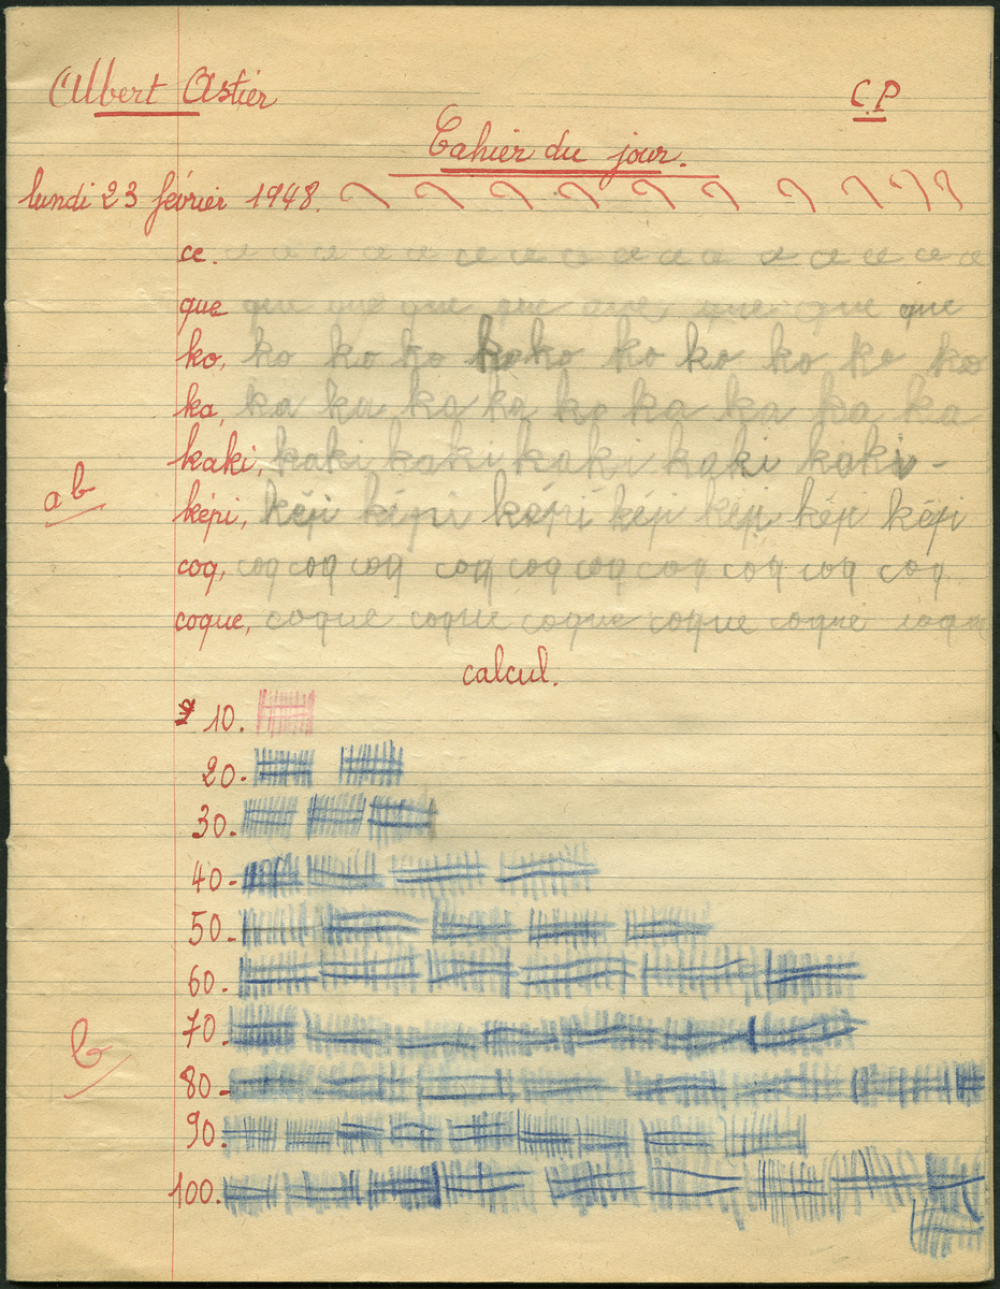 Albert Astier C.P
Cahier du jour.
lundi 23 février 1948.
ce. ce ce ce ce ce ce ce ce ce ce ce ce ce ce ce ce
que que que que que que que que que
ko, ko ko ko ko ko ko ko ko ko ko
ka, ka ka ka ka ka ka ka ka ka
kaki, kaki kaki kaki kaki kaki -
ab
képi, képi képi képi képi képi képi képi
coq, coq coq coq coq coq coq coq coq coq coq
coque, coque coque coque coque coque coque
calcul.
10.
20.
30.
40-
50-
60.
70.
b
80-
90.
100.